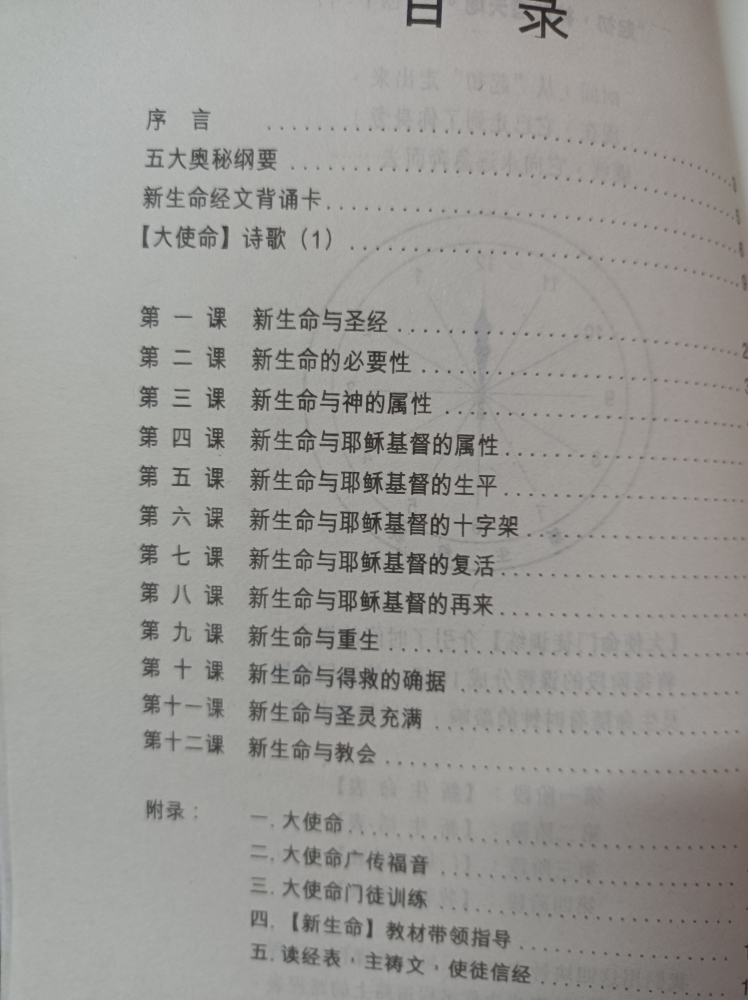 目 录
序 言 ....................
五大奥秘纲要 ....................
新生命经文背诵卡....................
【大使命】诗歌（1）....................
第 一 课 新生命与圣经....................
第 二 课 新生命的必要性....................
第 三 课 新生命与神的属性....................
第 四 课 新生命与耶稣基督的属性....................
第 五 课 新生命与耶稣基督的生平....................
第 六 课 新生命与耶稣基督的十字架....................
第 七 课 新生命与耶稣基督的复活....................
第 八 课 新生命与耶稣基督的再来....................
第 九 课 新生命与重生....................
第 十 课 新生命与得救的确据....................
第十一课 新生命与圣灵充满....................
第十二课 新生命与教会....................
附录： 一. 大使命....................
二. 大使命广传福音....................
三. 大使命门徒训练....................
四. 【新生命】教材带领指导....................
五. 读经表，主祷文，使徒信经....................